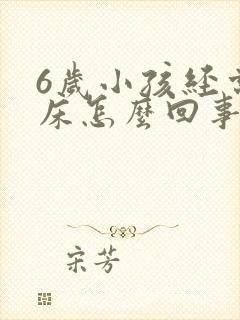 6歲小孩經
床怎麼回事
宋芳